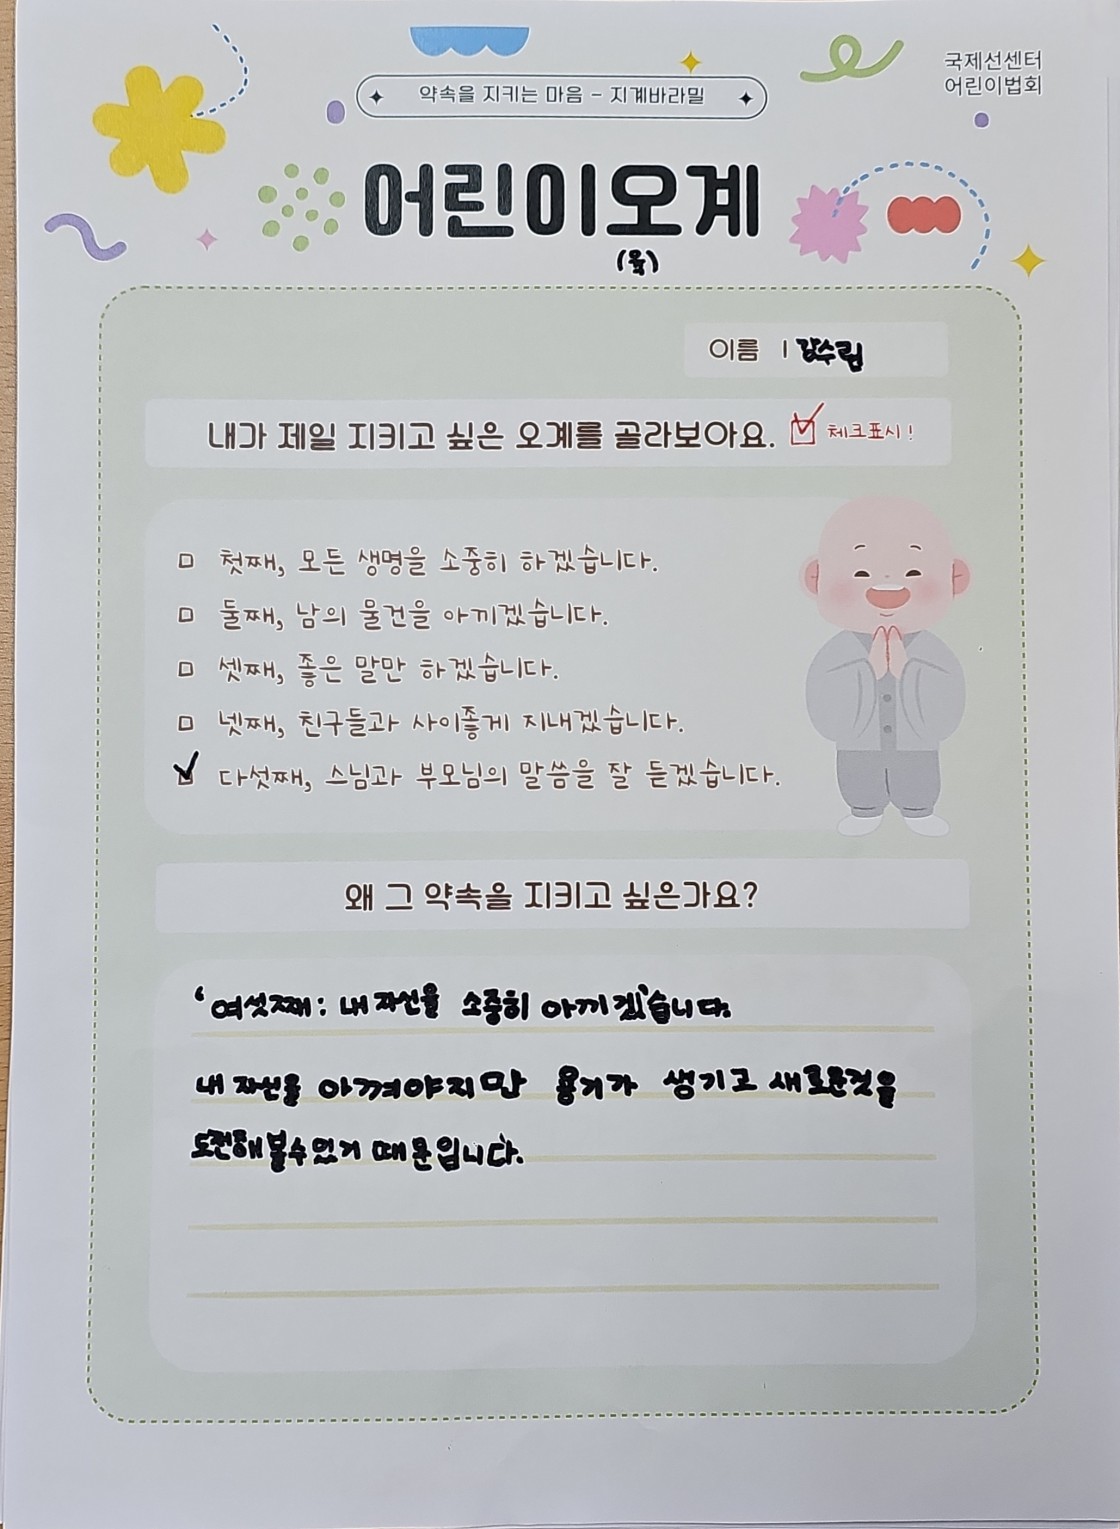 국제선센터
어린이법회
약속을 지키는 마음 - 지계바라밀
어린이오계
(육)
이름 | 강수림
내가 제일 지키고 싶은 오계를 골라보아요. 체크표시!
첫째, 모든 생명을 소중히 하겠습니다.
둘째, 남의 물건을 아끼겠습니다.
셋째, 좋은 말만 하겠습니다.
넷째, 친구들과 사이좋게 지내겠습니다.
다섯째, 스님과 부모님의 말씀을 잘 듣겠습니다.
왜 그 약속을 지키고 싶은가요?
'여섯째: 내 자신을 소중히 아끼겠습니다.
내 자신을 아껴야지만 용기가 생기고 새로운것을
도전해볼수있기 때문입니다.